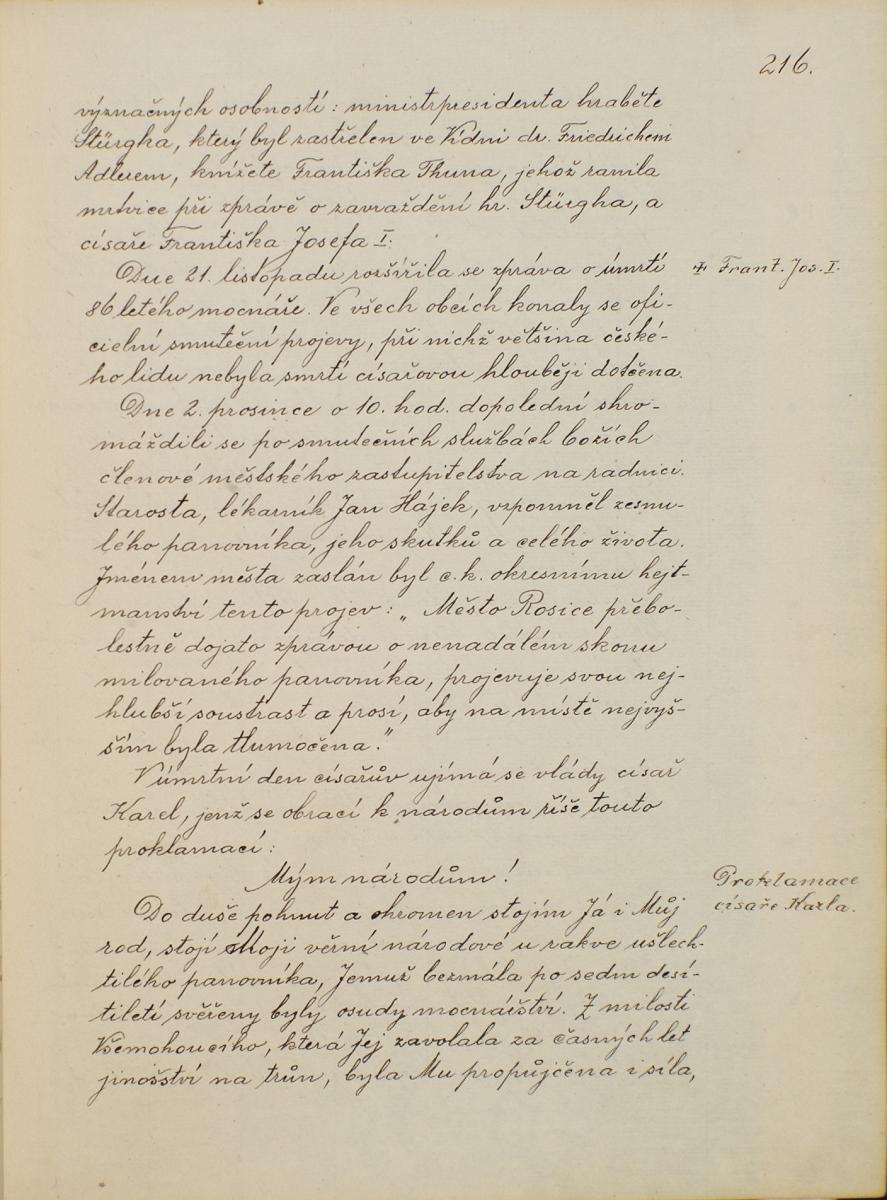 216.
význačných osobností: ministrpresidenta hraběte
Stürgka, který byl zastřelen ve Vídni dr. Friedrichem
Adlerem, knížete Františka Thuna, jehož ranila
mrtvice při zprávě o zavraždění hr. Stürgha, a
císaře Františka Josefa I.
Dne 21. listopadu rozšířila se zpráva o úmrtí
✝ Frant. Jos. I.
86 letého mocnáře. Ve všech obcích konaly se ofi-
cielní smuteční projevy, při nichž většina české-
ho lidu nebyla smrtí císařovou hlouběji dotčena.
Dne 2. prosince o 10. hod. dopolední shro-
máždili se po smutečních službách božích
členové městského zastupitelstva na radnici.
Starosta, lékarník Jan Hájek, vzpomněl zesnu-
lého panovníka, jeho skutků a celého života.
Jménem města zaslán byl c. k. okresnímu hejt-
manství tento projev: „Město Rosice přebo-
lestně dojato zprávou o nenadálém skonu
milovaného panovníka, projevuje svou nej-
hlubší soustrast a prosí, aby na místě nejvyš-
ším byla tlumočena."
V úmrtní den císařův ujímá se vlády císař
Karel, jenž se obrací k národům říše touto
proklamací:
Mým národům!
Proklamace
císaře Karla.
Do duše pohnut a ohromen stojím Já i Můj
rod, stojí Moji věrní národové u rakve ušlech-
tilého panovníka, Jemuž bezmála po sedm desí-
tiletí svěřeny byly osudy mocnářství. Z milosti
Všemohoucího, která Jej zavolala za časných let
jinošství na trůn, byla Mu propůjčena i síla,